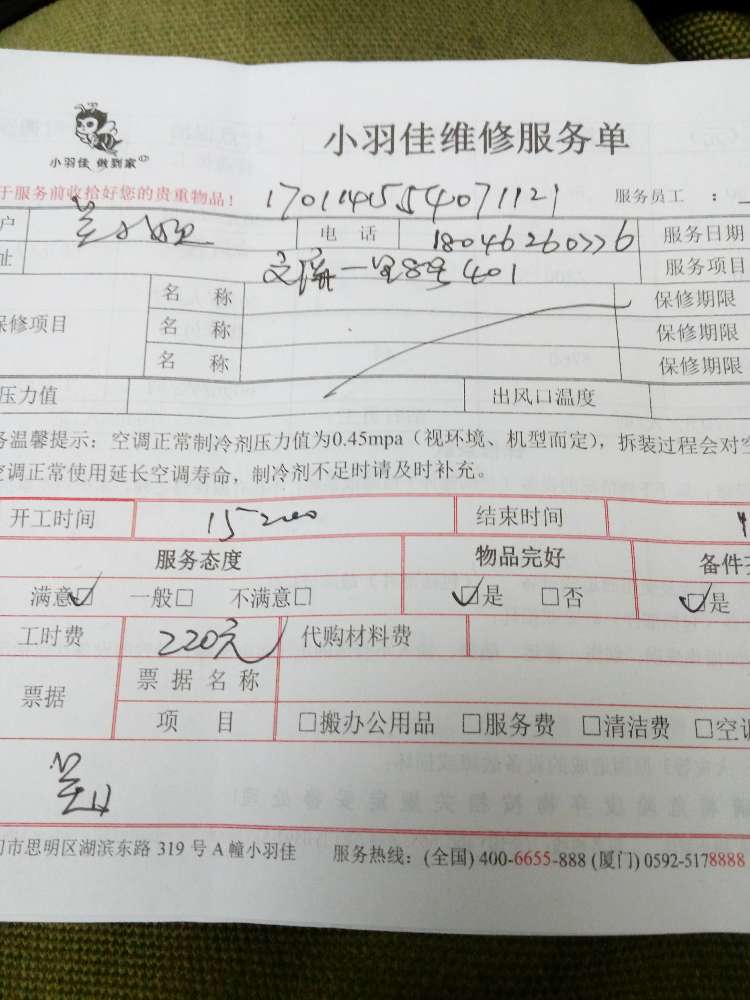 小羽佳维修服务单
小羽佳 做到家
于服务前收拾好您的贵重物品！ 1701145554071121 服务员工 ：
户 电 话 18046260776 服务日期
址 401 服务项目
保修项目 名 称 保修期限
名 称 保修期限
名 称 保修期限
压力值 出风口温度
务温馨提示：空调正常制冷剂压力值为0.45mpa（视环境、机型而定），拆装过程会对空
空调正常使用延长空调寿命，制冷剂不足时请及时补充。
开工时间 结束时间
服务态度 物品完好 备件
满意☑ 一般□ 不满意□ ☑是 □否 ☑是
工时费 220元 代购材料费
票据 票 据 名 称
项 目 □搬办公用品 □服务费 □清洁费 □空调
门市思明区湖滨东路 319 号 A 幢小羽佳 服务热线：(全国) 400-6655-888 (厦门) 0592-5178888